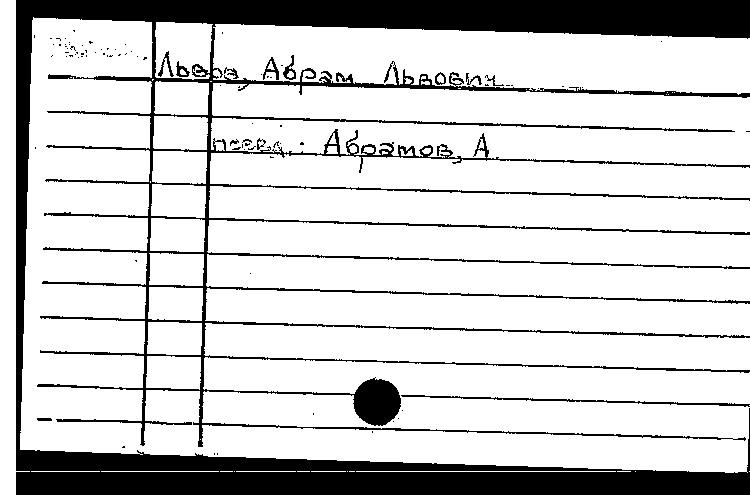 Львов, Абрам Львович
псевд.: Абрамов, А.